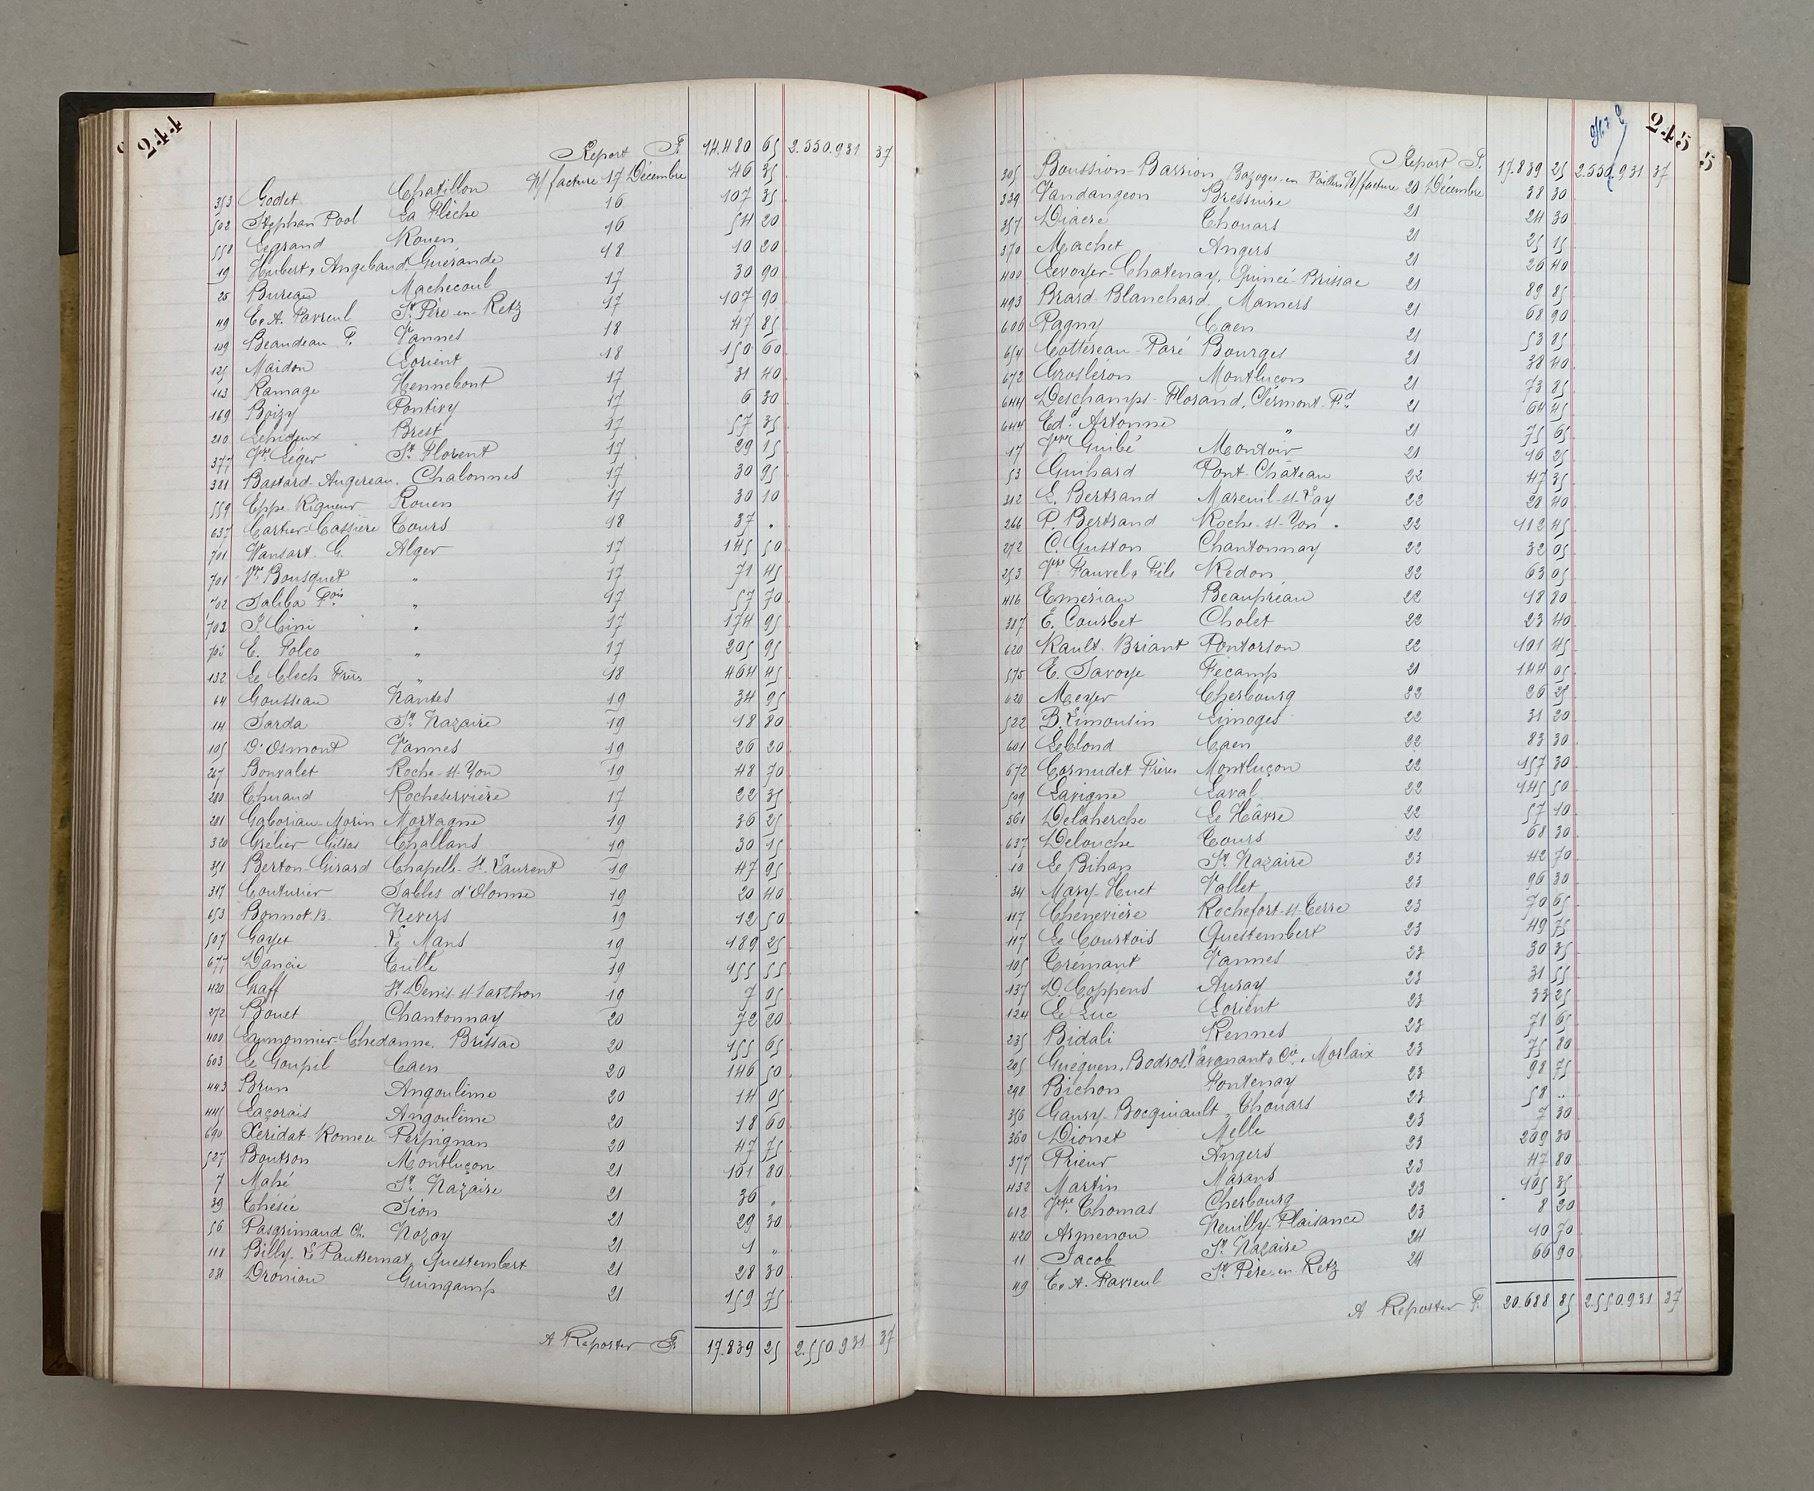 244
Report F. 14.480 65 2.550.931 37
353 Godet Chatillon N/facture 17 Décembre 46 35
502 Stéphan Pool La Flèche 16 107 35
558 Legrand Rouen 16 54 20
19 Hubert & Angebaud Guérande 18 10 20
25 Bureau Machecoul 17 30 90
49 C. A. Pavreul St Père-en-Retz 17 107 90
109 Beaudeau F. Vannes 18 47 85
125 Maidon Lorient 18 150 60
113 Ramage Hennebont 17 31 40
169 Boizy Pontivy 17 6 30
210 Lehideux Brest 17 57 35
377 Vve Léger St Florent 17 29 15
381 Bastard-Augereau, Chalonnes 17 30 95
559 Eppe-Rigueur Rouen 17 30 10
637 Cartier-Cassière Tours 18 37 .
701 Vansart G. Alger 17 145 50
701 Vve Bousquet " 17 71 45
702 Saliba Fçois " 17 57 70
702 J. Cini " 17 174 95
E. Polco " 17 205 95
132 Le Clech Frères " 18 464 45
64 Gousseau Nantes 19 34 95
14 Sarda St Nazaire 19 18 80
105 D'Osmont Vannes 19 26 20
267 Bonvalet Roche-s-Yon 19 48 70
280 Chuaud Rocheservière 17 22 35
281 Gaboriau-Morin Mortagne 19 36 25
320 Grelier Challans 19 30 15
351 Berton-Girard Chapelle-St-Laurent 19 47 95
317 Couturier Sables d'Olonne 19 20 40
653 Bonnot B. Nevers 19 12 50
507 Goyet Le Mans 19 189 25
677 Dancie Tulle 19 155 55
420 Graff St Denis-s-Sarthon 19 7 05
272 Bouet Chantonnay 20 72 20
400 Laumonnier-Chedanne, Brissac 20 155 65
603 Le Goupil Caen 20 146 50
443 Brun Angoulême 20 14 05
445 Laçorais Angoulême 20 18 60
690 Xeridat-Romeu Perpignan 20 47 75
527 Boutron Montluçon 21 101 80
7 Mahé St Nazaire 21 36 "
39 Thésée Sion 21 29 30
56 Pasgrimaud Ch. Nozay 21 1 "
118 Billy & Pautremat, Questembert 21 28 30
231 Droniou Guingamp 21 159 75
A Reporter F. 17.839 25 2.550.931 37
245
Report F. 17.839 25 2.550.931 37
205 Boussion-Bassion, Bazoges-en-Paillers N/facture 20 Décembre 38 30
339 Vandangeon Bressuire 21 24 30
357 Diacre Thouars 21 25 15
370 Machet Angers 21 26 40
400 Levoyer-Chatenay, Quincé-Brissac 21 89 85
493 Brard-Blanchard, Mamers 21 68 90
606 Pagny Caen 21 53 85
654 Cottereau-Paré Bourges 21 38 40
672 Grosleron Montluçon 21 73 85
644 Deschamps-Florand, Clermont-Fd 21 64 45
644 Edd Artonne " 21 75 65
17 Vve Guibé Montoir 21 16 25
53 Guihard Pont-Château 22 47 35
312 E. Bertrand Mareuil-s-Lay 22 28 40
266 P. Bertrand Roche-s-Yon 22 112 45
272 C. Guston Chantonnay 22 32 05
253 Vve Fauvel & Fils Redon 22 63 05
416 Emerian Beaupréau 22 18 80
387 E. Courbet Cholet 22 23 40
620 Rault-Briant Pontorson 22 101 45
575 E. Savoye Fécamp 21 144 05
620 Meyer Cherbourg 22 26 25
522 B. Limousin Limoges 22 31 20
601 Leblond Caen 22 83 30
672 Cornudet Frères Montluçon 22 157 30
509 Lavigne Laval 22 145 50
561 Delaherche Le Hâvre 22 57 10
637 Delouche Tours 22 68 30
10 Le Bihan St Nazaire 23 42 70
34 Mary-Huet Vallet 23 96 30
117 Chenevière Rochefort-s-Terre 23 70 65
117 Le Courtois Questembert 23 49 75
105 Trémant Vannes 23 30 35
137 D. Coppens Auray 23 31 55
124 Le Luc Lorient 23 33 25
235 Bidali Rennes 23 71 65
205 Guéguen, Bodros, & Cie, Morlaix 23 75 80
298 Bichon Fontenay 23 98 75
356 Gaury-Bocquiault, Thouars 23 58 ..
360 Dionet Melle 23 7 30
377 Prieur Angers 23 209 30
432 Martin Marans 23 47 80
612 Vve Thomas Cherbourg 23 105 35
420 Armenou Neuilly-Plaisance 23 8 20
11 Jacob St Nazaire 24 10 70
49 C. A. Pavreul St Père-en-Retz 24 66 90
A Reporter F. 20.688 85 2.550.931 37
5